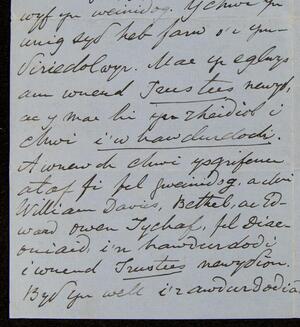 wyf yn weinidog. Ychwi yn
unig sydd heb farw o'r ym-
diriedolwyr. Mae yr eglwys
am wneud Trustees newydd,
ac y mae hi yn rhaidiol i
chwi i'w hawdurdodi.
A wnewch chwi ysgrifenu
ataf fi fel gweinidog, a chwi
William Davis, Bethel, ac Ed-
ward Owen Tychaf, fel Diac-
oniaid, i'n hawdurdodi
i wneud Trustees newyddion.
Bydd yn well i'r awdurdodia